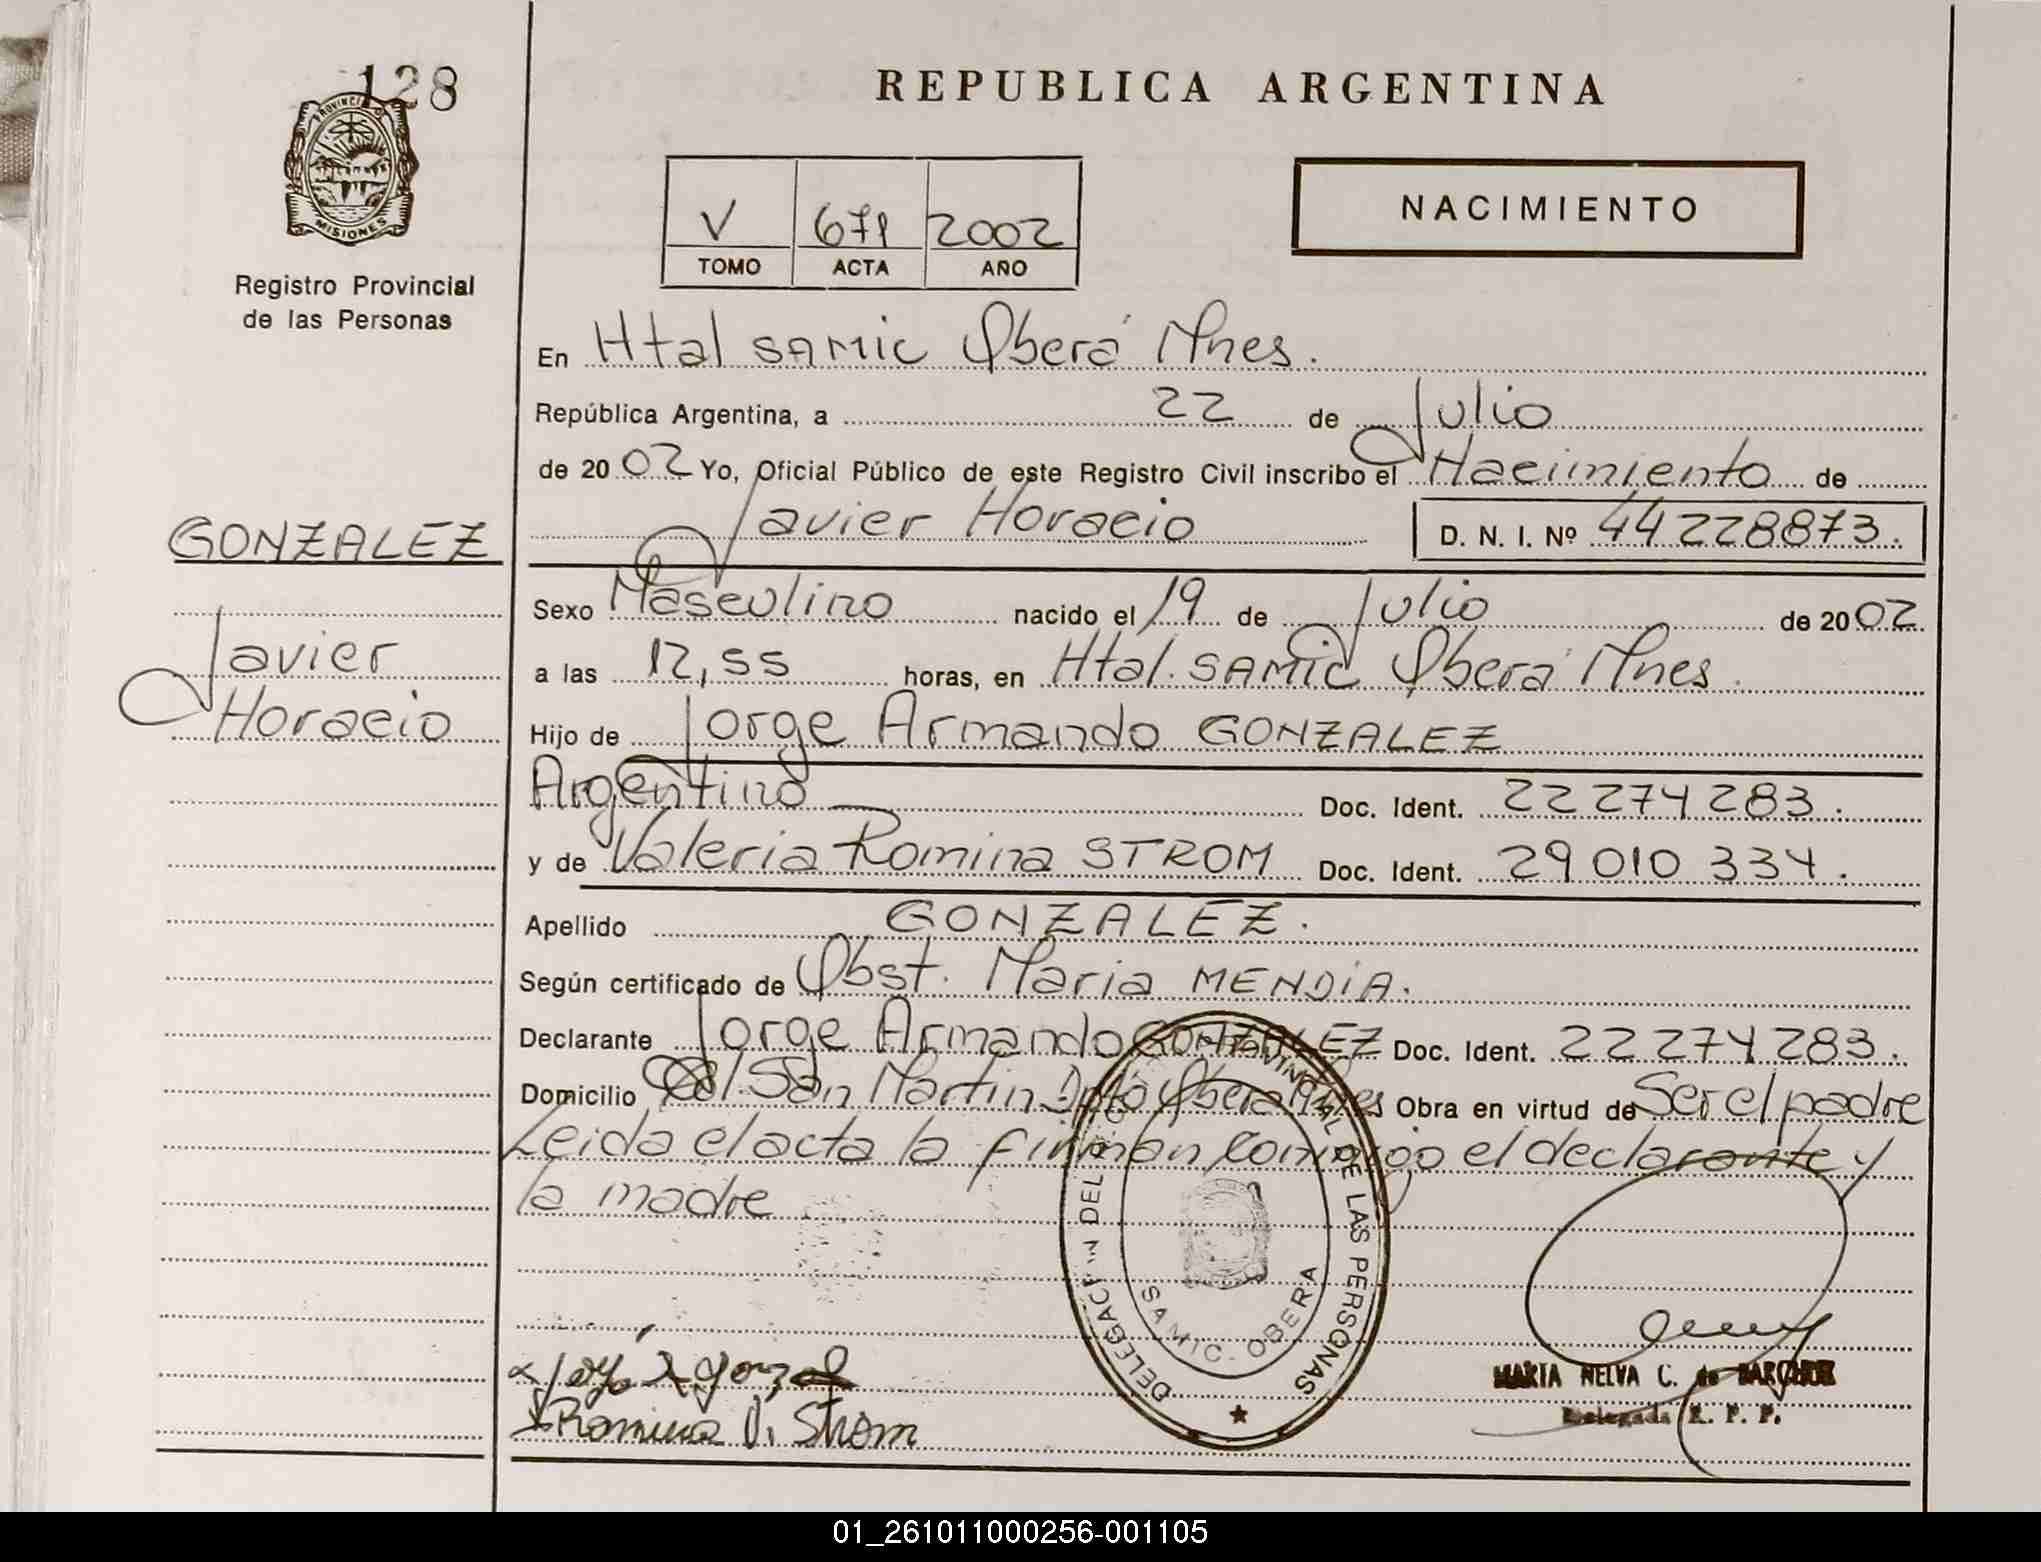 128
PROVINCIA
MISIONES
Registro Provincial
de las Personas
GONZALEZ
Javier
Horacio
REPUBLICA ARGENTINA
V 671 2002
TOMO ACTA AÑO
NACIMIENTO
En Htal SAMIC Oberá Mnes.
República Argentina, a 22 de Julio
de 2002 Yo, Oficial Público de este Registro Civil inscribo el Nacimiento de
Javier Horacio D. N. I. Nº 44228873.
Sexo Masculino nacido el 19 de Julio de 2002
a las 12,55 horas, en Htal. SAMIC Oberá Mnes.
Hijo de Jorge Armando GONZALEZ
Argentino Doc. Ident. 22 274 283.
y de Valeria Romina STROM Doc. Ident. 29 010 334.
Apellido GONZALEZ.
Según certificado de Obst. Maria MENDIA.
Declarante Jorge Armando GONZALEZ Doc. Ident. 22 274 283.
Domicilio Col. San Martin Dpto Obera Mnes Obra en virtud de Ser el padre
Leida el acta la firman conmigo el declarante y
la madre
DELEGACION DEL REGISTRO PROVINCIAL DE LAS PERSONAS
SAMIC - OBERA
Romina V. Strom
MARIA NELVA C. de
Delegada R. P. P.
01_261011000256-001105